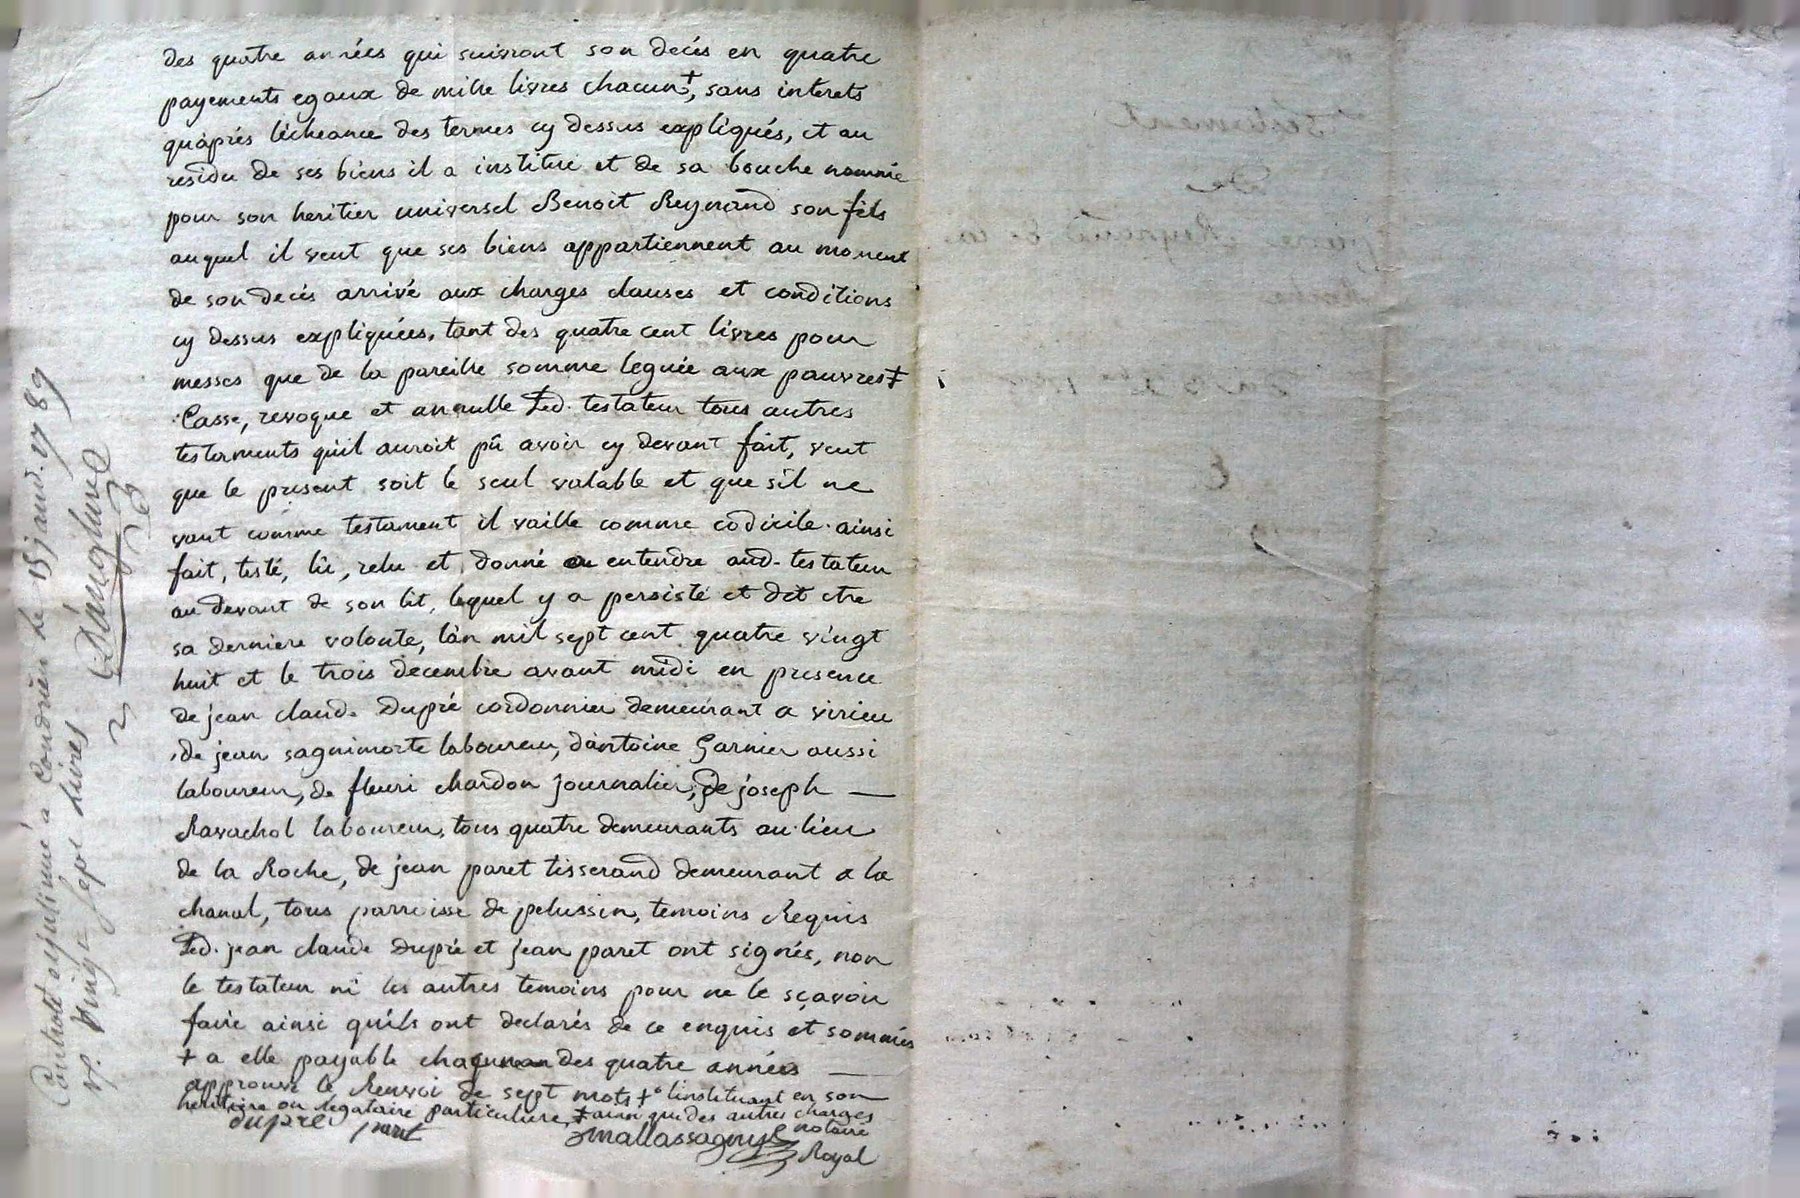 des quatre années qui suivront son decés en quatre
payements egaux de mille livres chacun+, sans interets
qu'aprés l'écheance des termes cy dessus expliqués, et au
residu de ses biens il a institué et de sa bouche nommé
pour son heritier universel Benoit Reynaud son fils
auquel il veut que ses biens appartiennent au moment
de son decés arrivé aux charges clauses et conditions
cy dessus expliquées, tant des quatre cent livres pour
messes que de la pareille somme leguée aux pauvres ‡
Casse, revoque et annulle Led. testateur tous autres
testaments qu'il auroit pû avoir cy devant fait, veut
que le present soit le seul valable et que s'il ne
vaut comme testament il vaille comme codicile. ainsi
fait, testé, lû, relu et donné a entendre aud. testateur
au devant de son lit, lequel y a persisté et dit etre
sa derniere volonte, l'an mil sept cent quatre vingt
huit et le trois decembre avant midi en presence
de jean claude Dupré cordonnier demeurant a virieu
de jean sagnimorte laboureur, d'antoine Garnier aussi
laboureur, de fleuri chardon journalier, de joseph —
Ravachol laboureur, tous quatre demeurants au lieu
de la Roche, de jean paret tisserand demeurant a la
chanal, tous parroisse de pelussin, temoins Requis
Led. jean claude Dupré et jean paret ont signés, non
le testateur ni les autres temoins pour ne le sçavoir
faire ainsi qu'ils ont declarés de ce enquis et sommés
+ a elle payable chacune des quatre années —
approuvé le Renvoi de sept mots + l'instituant en son
heritiere ou legataire particuliere, ‡ ainsi que des autres charges
dupré paret mallassagny notaire
Royal
Controlé et insinué a Condrieu Le 15 janv. 1789
vingt sept livres
Testament
De
Reynaud de la
Roche